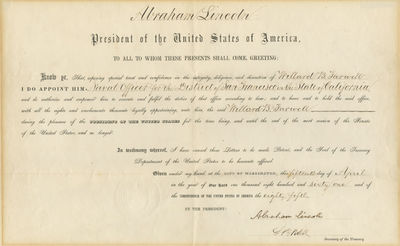 Abraham Lincoln
President of the United States of America,
TO ALL TO WHOM THESE PRESENTS SHALL COME, GREETING:
Know ye, That, reposing special trust and confidence in the integrity, diligence, and discretion of Willard B. Farwell
I DO APPOINT HIM, Naval Officer for the District of San Francisco in the State of California
and do authorize and empower him to execute and fulfil the duties of that office according to law; and to have and to hold the said office,
with all the rights and emoluments thereunto legally appertaining, unto him, the said Willard B. Farwell
during the pleasure of the PRESIDENT OF THE UNITED STATES for the time being, and until the end of the next session of the Senate
of the United States, and no longer.
In testimony whereof, I have caused these Letters to be made Patent, and the Seal of the Treasury
Department of the United States to be hereunto affixed.
Given under my hand, at the CITY OF WASHINGTON, the fifteenth day of April
in the year of our Lord one thousand eight hundred and sixty one and of
the INDEPENDENCE OF THE UNITED STATES OF AMERICA the eighty fifth.
BY THE PRESIDENT:
Abraham Lincoln
Secretary of the Treasury.